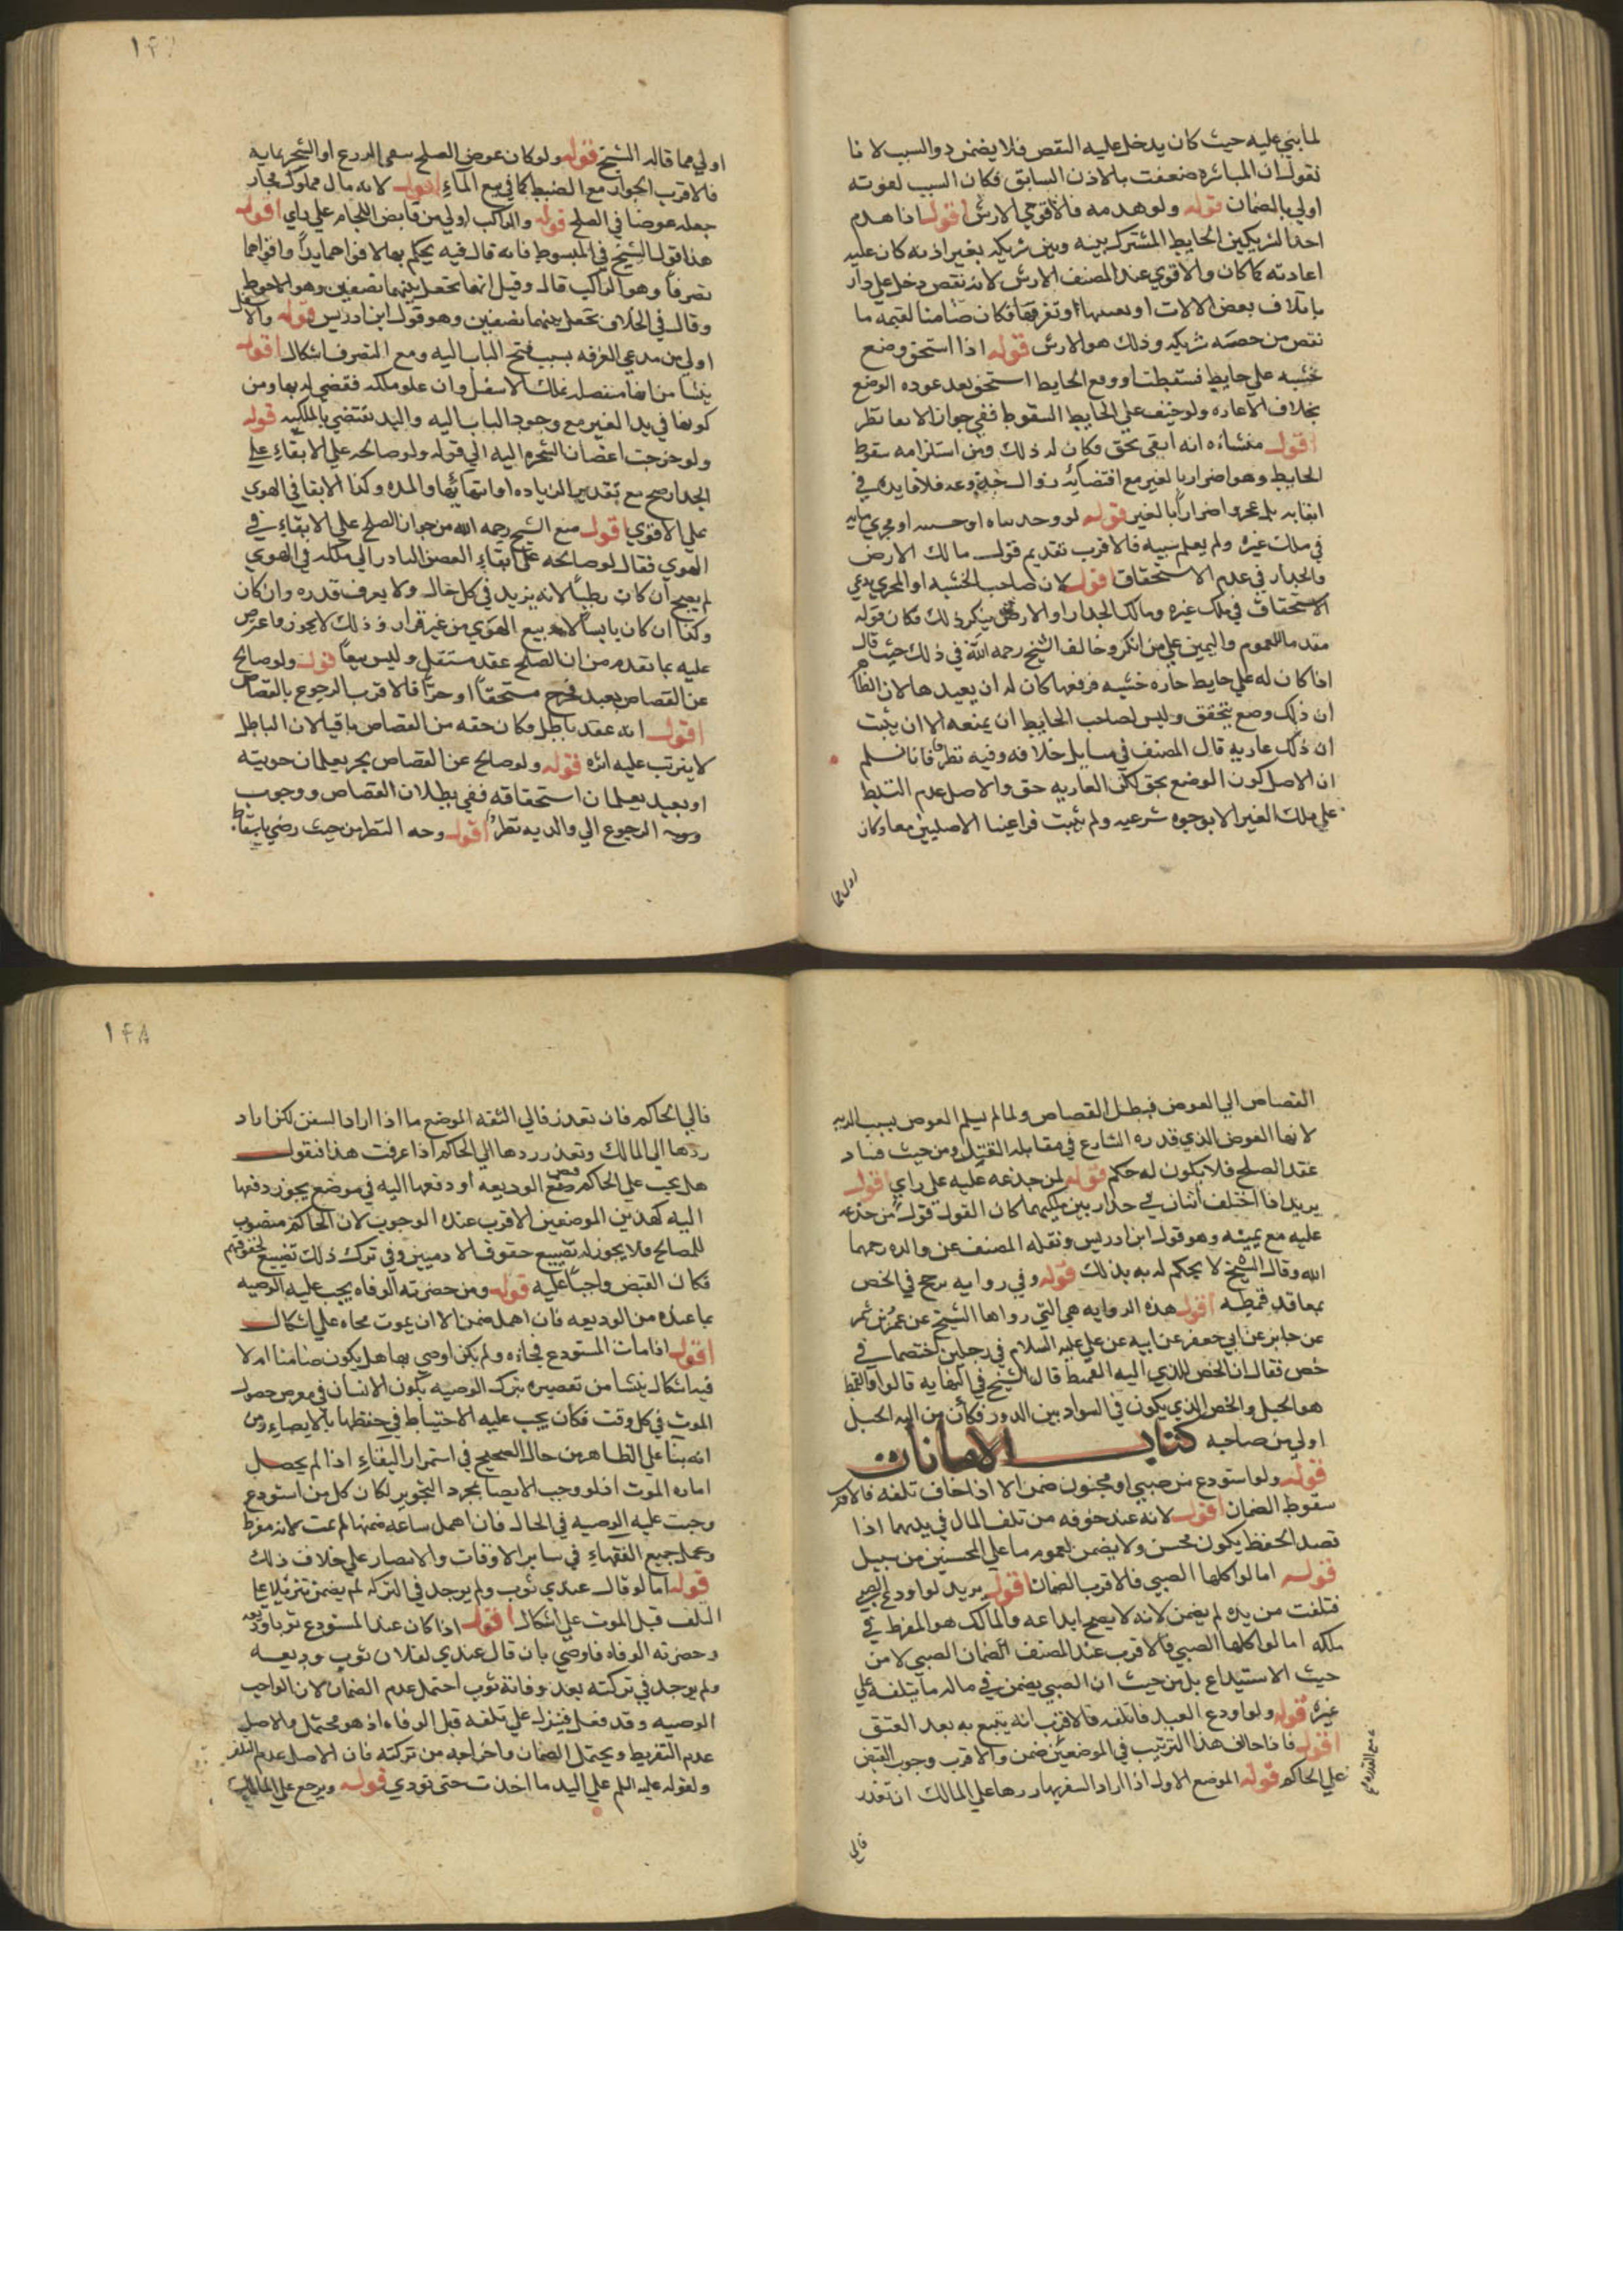 لما بني عليه حيث كان يدخل عليه النقص فلا يضمن ذو السبب لانا
نقول ان المباشره ضعفت بالاذن السابق فكان السبب لقوته
اولي بالضمان قوله ولو هدمه فالاقوي الارش اقول اذا هدم
احد الشريكين الحايط المشترك بينه وبين شريكه بغير اذنه كان عليه
اعادته كما كان والاقوي عند المصنف الارش لانه نقص دخل علي دار
باتلاف بعض الالات او تفرقها فكان ضامنا لقيمه ما
نقص من حصه شريكه وذلك هو الارش قوله اذا استحق وضع
خشبه علي حايط فسقطت او وقع الحايط استحق بعد عوده الوضع
بخلاف الاعاره ولو خيف علي الحايط السقوط ففي جواز الابقا نظر
اقول منشاؤه انه ابقي بحق فكان له ذلك ومن استلزامه سقوط
الحايط وهو اضرار بالغير مع اقتضائه زوال فلا فايده في
ابقايه بل عجرد اضرار بالغير قوله لو وجد بناه او خشبه او مجري مايه
في ملك غيره ولم يعلم سببه فالاقرب تقديم قول مالك الارض
والجدار في عدم الاستحقاق اقول لان صاحب الخشبه او المجري يدعي
الاستحقاق في ملك غيره ومالك الجدار او الارض ينكر ذلك فكان قوله
مقدما للعموم واليمين علي من انكر وخالف الشيخ رحمه الله في ذلك حيث قال
اذا كان له علي حايط جاره خشبه فرفعها كان له ان يعيدها لان الظاهر
ان ذلك وضع بتحقق وليس لصاحب الحايط ان يمنعه الا ان يثبت
ان ذلك عاريه قال المصنف في مسايل خلافه وفيه نظر فانا نسلم
ان الاصل كون الوضع بحق لكن العاريه حق والاصل عدم التسلط
علي ملك الغير الا بوجوه شرعيه ولم يثبت فراعينا الاصليين معا وكان
اولي مما
اولي مما قاله الشيخ قوله ولو كان عوض الصلح سقي الزرع او الشجر بمايه
فالاقرب الجواز مع الضبط كما في بيع الماء اقول لانه مال مملوك فجاز
جعله عوضا في الصلح قوله والراكب اولي من قابض اللجام علي راي اقول
هذا قول الشيخ في المبسوط فانه قال فيه يحكم بها لاقواهما يدا واقواهما
تصرفا وهو الراكب قال وقيل انها تجعل بينهما نصفين وهو الاحوط
وقال في الخلاف تجعل بينهما نصفين وهو قول ابن ادريس قوله والاسفل
اولي من مدعي الغرفه بسبب فتح الباب اليه ومع التصرف اشكال اقول
ينشا من انها متصله بملك الاسفل وان علو ملكه فقضي له بها ومن
كونها في يد الغير مع وجود الباب اليه واليد تقتضي بالملكيه قوله
ولو خرجت اغصان الشجره اليه الي قوله ولو صالحه علي الابقاء علي
الجدار صح مع تقدير الزياده او انتهائها والمده وكذا الابقا في الهوي
علي الاقوي اقول منع الشيخ رحمه الله من جواز الصلح علي الابقاء في
الهوي فقال لو صالحه علي ابقاء الغصن البادر الي ملكه في الهوي
لم يصح ان كان رطبا لانه يزيد في كل حال ولا يعرف قدره وان كان
وكذا ان كان يابسا لانه بيع الهوي من غير قرار وذلك لا يجوز واعرض
عليه بما تقدم من ان الصلح عقد مستقل وليس بيعا قوله ولو صالح
عن القصاص بعبد فخرج مستحقا او حرا فالاقرب الرجوع بالقصاص
اقول انه عقد باطل فكان حقه من القصاص باقيا لان الباطل
لا يترتب عليه اثره قوله ولو صالح عن القصاص بحر يعلمان حريته
او بعبد يعلمان استحقاقه ففي بطلان القصاص ووجوب
الرجوع الي والديه نظر اقول وجه النظر من حيث رضي باسقاط
القصاص الي العوض فبطل القصاص ولما لم يسلم العوض يسب الديه
لانها العوض الذي قدره الشارع في مقابله القتل ومن حيث فساد
عقد الصلح فلا يكون له حكم قوله لمن جذعه عليه علي راي اقول
يريد اذا اختلف اثنان في جدار بين ملكيهما كان القول قول من جذعه
عليه مع يمينه وهو قول ابن ادريس ونقله المصنف عن والده رحمهما
الله وقال الشيخ لا يحكم له به بذلك قوله وفي روايه يرجح في الخص
بمعاقد قمطه اقول هذه الروايه هي التي رواها الشيخ عن عمرو بن شمر
عن جابر عن ابي جعفر عن ابيه عن علي عليه السلام في رجلين اختصما في
خص فقال ان الخص للذي اليه القمط قال الشيخ في النهايه قالوا والقمط
هو الحبل والخص الذي يكون في السواد بين الدور فكان من اليه الحبل
اولي من صاحبه كتاب الامانات
قوله ولو استودع من صبي او مجنون ضمن الا اذا خاف تلفه فالاقرب
سقوط الضمان اقول لانه عند خوفه من تلف المال في يدهما اذا
قصد الحفظ يكون محسن ولا يضمن لعموم ما علي المحسنين من سبيل
قوله اما لو اكلها الصبي فالاقرب الضمان اقول يريد لو اودع الصبي
فتلفت من يده لم يضمن لانه لا يصح ايداعه والمالك هو المفرط في
ملكه اما لو اكلها الصبي فالاقرب عند المصنف الضمان الصبي لا من
حيث الاستيداع بل من حيث ان الصبي يضمن في ماله ما يتلفه علي
غيره قوله ولو اودع العبد فاتلفه فالاقرب انه يتبع به بعد العتق
اقول فاذا خالف هذا الترتيب في الموضعين ضمن والاقرب وجوب القبض
علي الحاكم قوله الموضع الاول اذا اراد السفر بها ردها علي المالك ان تعذر
فالي
فالي الحاكم فان تعذر فالي الثقه الموضع ما اذا اراد السفر لكن اراد
ردها الي المالك وتعذر ردها الي الحاكم اذا عرفت هذا فنقول
هل يجب علي الحاكم قبض الوديعه او دفعها اليه في موضع يجوز دفعها
اليه كهذين الموضعين الاقرب عنده الوجوب لان الحاكم منصوب
للمصالح فلا يجوز له تضييع حقوق الادميين وفي ترك ذلك تضييع لحقوقهم
فكان القبض واجبا عليه قوله ومن حضرته الوفاه يجب عليه الوصيه
بما عنده من الوديعه فان اهمل ضمن الا ان يموت فجاه علي اشكال
اقول اذا مات المستودع فجاءه ولم يكن اوصي بها هل يكون ضامنا ام لا
فيه اشكال ينشا من تقصيره بترك الوصيه لكون الانسان في معرض حصول
الموت في كل وقت فكان يجب عليه الاحتياط في حفظها بالايصاء ومن
انه بنا علي الظاهر من حال الصحيح في استمرار البقاء اذا لم يحصل
اماره الموت اذ لو وجب الايصا بمجرد التجويز لكان كل من استودع
وجبت عليه الوصيه في الحال فان اهمل ساعه ضمنها لم يمت لانه مفرط
وعمل جميع الفقهاء في ساير الاوقات والامصار علي خلاف ذلك
قوله اما لو قال عندي ثوب ولم يوجد في التركه لم يضمن تنزيلا علي
التلف قبل الموت علي اشكال اقول اذا كان عند المستودع ثوبا وديعه
وحضرته الوفاه فاوصي بان قال عندي لفلان ثوب وديعه
ولم يوجد في تركته بعد وفاته ثوب احتمل عدم الضمان لان الواجب
الوصيه وقد فعل فينزل علي تلفه قبل الوفاه اذ هو محتمل والاصل
عدم التفريط ويحتمل الضمان واخراجه من تركته فان الاصل عدم التلف
ولقوله عليه السلم علي اليد ما اخذت حتي تودي قوله ويرجع علي المالك